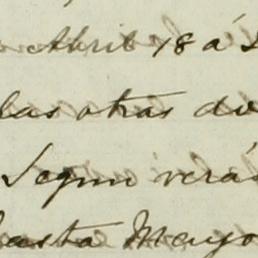 Abril 18 á
las otras do
Segun verá
hasta Mayo